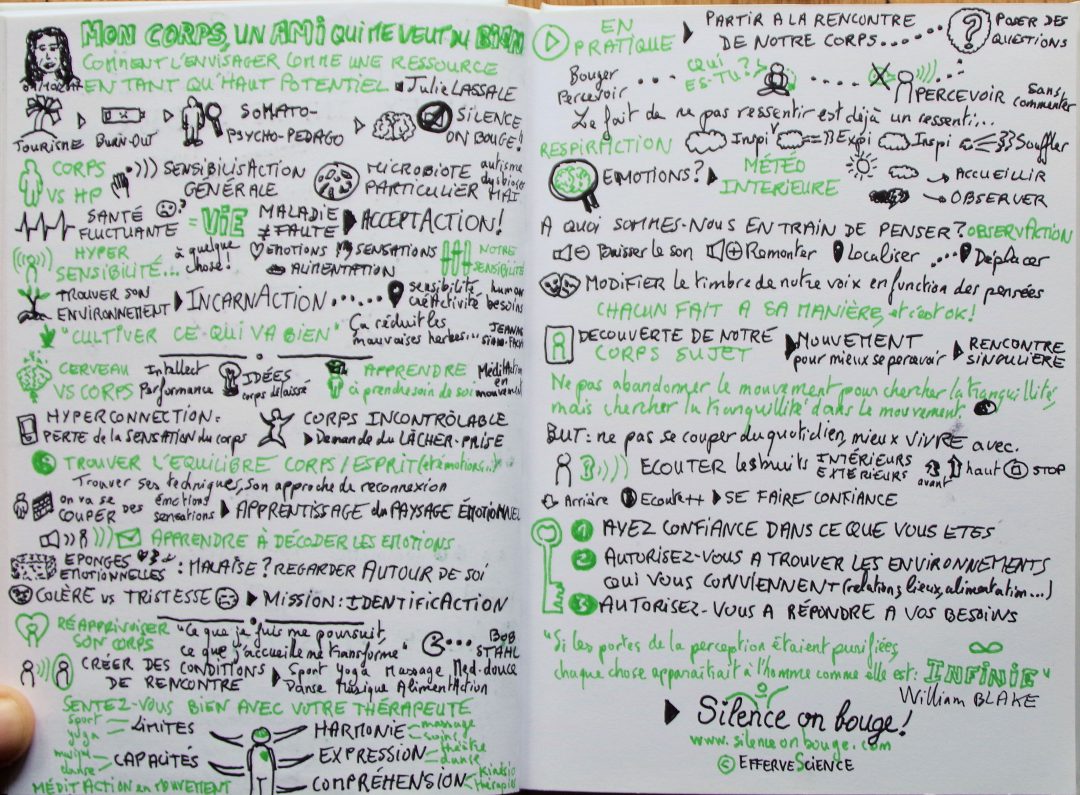 MON CORPS, UN AMI QUI ME VEUT DU BIEN
COMMENT L'ENVISAGER COMME UNE RESSOURCE
EN TANT QU'HAUT POTENTIEL. Julie LASSALE
TOURISME BURN-OUT SOMATO-PSYCHO-PEDAGO SILENCE ON BOUGE!
CORPS VS HP SENSIBILISACTION GÉNÉRALE MICROBIOTE PARTICULIER autisme dysbiose MAI
SANTÉ FLUCTUANTE = VIE MALADIE ≠ FAUTE ACCEPTACTION!
HYPER SENSIBILITÉ... à quelque chose! ÉMOTIONS SENSATIONS ALIMENTATION NOTRE SENSIBILITÉ
TROUVER SON ENVIRONNEMENT INCARNACTION..... sensibilité, humain créActivité besoins
"CULTIVER CE QUI VA BIEN" Ça réduit les mauvaises herbes...
CERVEAU VS CORPS Intellect Performance IDÉES corps délaissé APPRENDRE à prendre soin de soi MéditAction en mouvement
HYPERCONNECTION: PERTE de la SENSATION du corps CORPS INCONTRÔLABLE Demande du LÂCHER-PRISE
TROUVER L'EQUILIBRE CORPS/ESPRIT (et émotions...)
Trouver ses techniques, son approche de reconnexion
on va se COUPER DES émotions sensations APPRENTISSAGE du PAYSAGE ÉMOTIONNEL
APPRENDRE À DÉCODER LES EMOTIONS
EPONGES EMOTIONNELLES: MALAISE? REGARDER AUTOUR DE SOI
COLÈRE vs TRISTESSE MISSION: IDENTIFICACTION
RÉAPPRIVOISER SON CORPS "Ce que je fuis me poursuit, ce que j'accueille me transforme" BOB STAHL
CRÉER DES CONDITIONS DE RENCONTRE Sport Yoga Massage Med-douce
Danse Musique AlimentAction
SENTEZ-VOUS BIEN AVEC VOTRE THÉRAPEUTE
sport yoga LIMITES HARMONIE massage soins
musique danse CAPACITÉS EXPRESSION théâtre danse
MÉDITACTION en MOUVEMENT COMPRÉHENSION Kinésio thérapies
EN PRATIQUE PARTIR A LA RENCONTRE DE NOTRE CORPS..... ? POSER DES QUESTIONS
Bouger Percevoir ... QUI ES-TU? .... PERCEVOIR sans commenter
Le fait de ne pas ressentir est déjà un ressenti...
RESPIRACTION Inspi Expi Inspi Souffler
EMOTIONS? MÉTÉO INTERIEURE ACCUEILLIR
OBSERVER
A QUOI SOMMES-NOUS EN TRAIN DE PENSER? OBSERVACTION
Baisser le son Remonter Localiser ... Déplacer
MODIFIER le timbre de notre voix en fonction des pensées
CHACUN FAIT A SA MANIÈRE, et c'est OK!
DECOUVERTE DE NOTRE CORPS SUJET MOUVEMENT pour mieux se percevoir RENCONTRE SINGULIÈRE
Ne pas abandonner le mouvement pour chercher la tranquillité,
mais chercher la tranquillité dans le mouvement.
BUT: ne pas se couper du quotidien, mieux VIVRE avec.
ECOUTER les bruits INTÉRIEURS EXTÉRIEURS avant haut STOP
Arrière Ecoute++ SE FAIRE CONFIANCE
1 AYEZ CONFIANCE DANS CE QUE VOUS ETES
2 AUTORISEZ-VOUS A TROUVER LES ENVIRONNEMENTS
QUI VOUS CONVIENNENT (relations, lieux, alimentation...)
3 AUTORISEZ-VOUS A RÉPONDRE A VOS BESOINS
"Si les portes de la perception étaient purifiées,
chaque chose apparaîtrait à l'homme comme elle est: INFINIE"
William BLAKE
Silence on bouge!
www.silenceonbouge.com
© EFFERVESCIENCE